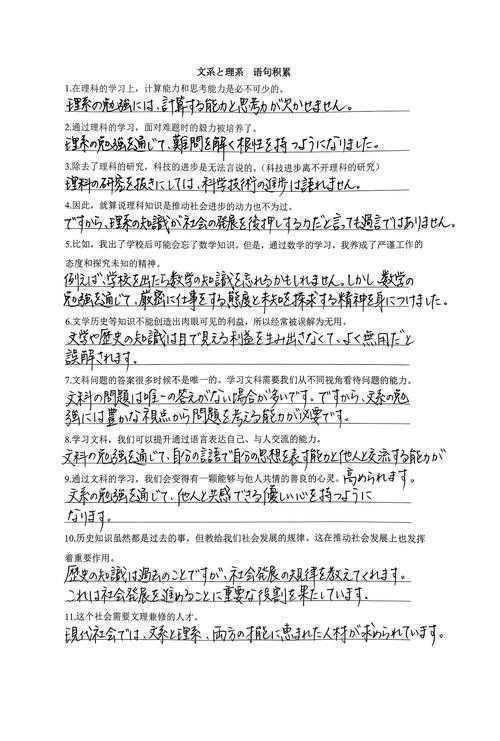 文系と理系 语句积累
1.在理科的学习上，计算能力和思考能力是必不可少的。
理系の勉強には、計算する能力と思考力が欠かせません。
2.通过理科的学习，面对难题时的毅力被培养了。
理系の勉強を通じて、難問を解く根性を持つようになりました。
3.除去了理科的研究，科技的进步是无法言说的。（科技进步离不开理科的研究）
理科の研究を抜きにしては、科学技術の進歩は語れません。
4.因此，就算说理科知识是推动社会进步的动力也不为过。
ですから、理系の知識が社会の発展を後押しする力だと言っても過言ではありません。
5.比如，我出了学校后可能会忘了数学知识。但是，通过数学的学习，我养成了严谨工作的
态度和探究未知的精神。
例えば、学校を出たら数学の知識を忘れるかもしれません。しかし、数学の
勉強を通じて、厳密に仕事をする態度と未知を探求する精神を身につけました。
6.文学历史等知识不能创造出肉眼可见的利益，所以经常被误解为无用。
文学や歴史の知識は目で見える利益を生み出さなくて、よく無用だと
誤解されます。
7.文科问题的答案很多时候不是唯一的。学习文科需要我们从不同视角看待问题的能力。
文科の問題は唯一の答えがない場合が多いです。ですから、文系の勉
強には豊かな視点から問題を考える能力が必要です。
8.学习文科，我们可以提升通过语言表达自己、与人交流的能力。
文科の勉強を通じて、自分の言語で自分の思想を表す能力と他人と交流する能力が
高められます。
9.通过文科的学习，我们会变得有一颗能够与他人共情的善良的心灵。
文系の勉強を通じて、他人と共感できる優しい心を持つように
なります。
10.历史知识虽然都是过去的事，但教给我们社会发展的规律。这在推动社会发展上也发挥
着重要作用。
歴史の知識は過去のことですが、社会発展の規律を教えてくれます。
これは社会発展を進めることに重要な役割を果たしています。
11.这个社会需要文理兼修的人才。
現代社会では、文系と理系、両方の才能に恵まれた人材が求められています。